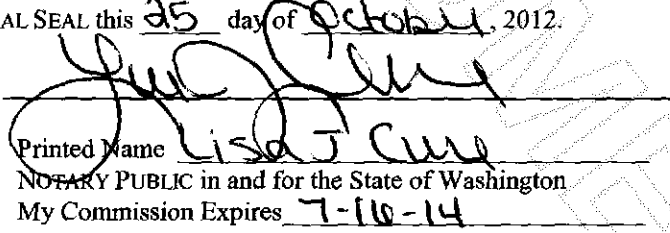 AL SEAL this 25 day of October, 2012.
Printed Name Lisa J
NOTARY PUBLIC in and for the State of Washington
My Commission Expires 7-16-14